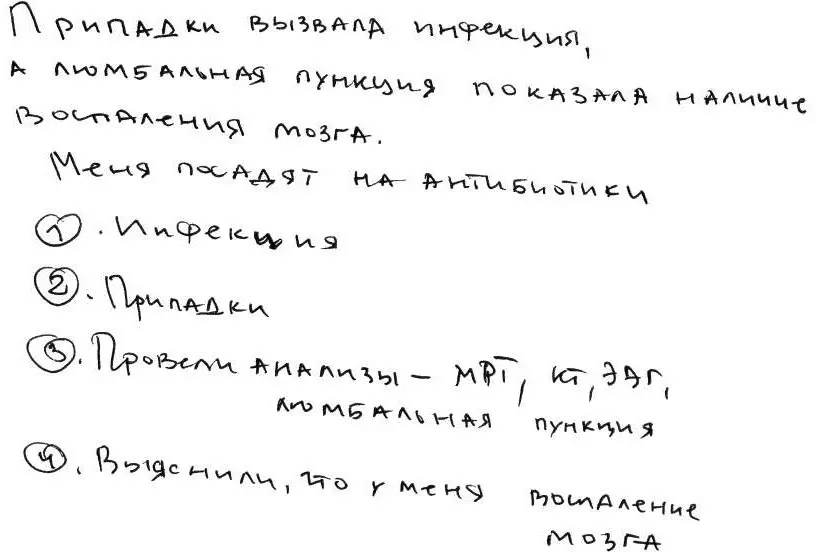 Припадки вызвала инфекция,
а люмбальная пункция показала наличие
воспаления мозга.
Меня посадят на антибиотики
1. Инфекция
2. Припадки
3. Провели анализы – МРТ, КТ, ЭЭГ,
люмбальная пункция
4. Выяснили, что у меня воспаление
мозга